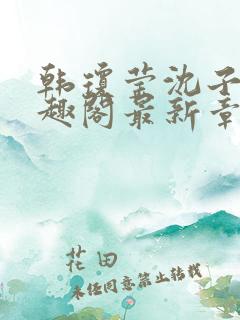 韩琼莹沈子
趣阁最新章
花田
未经同意禁止转载